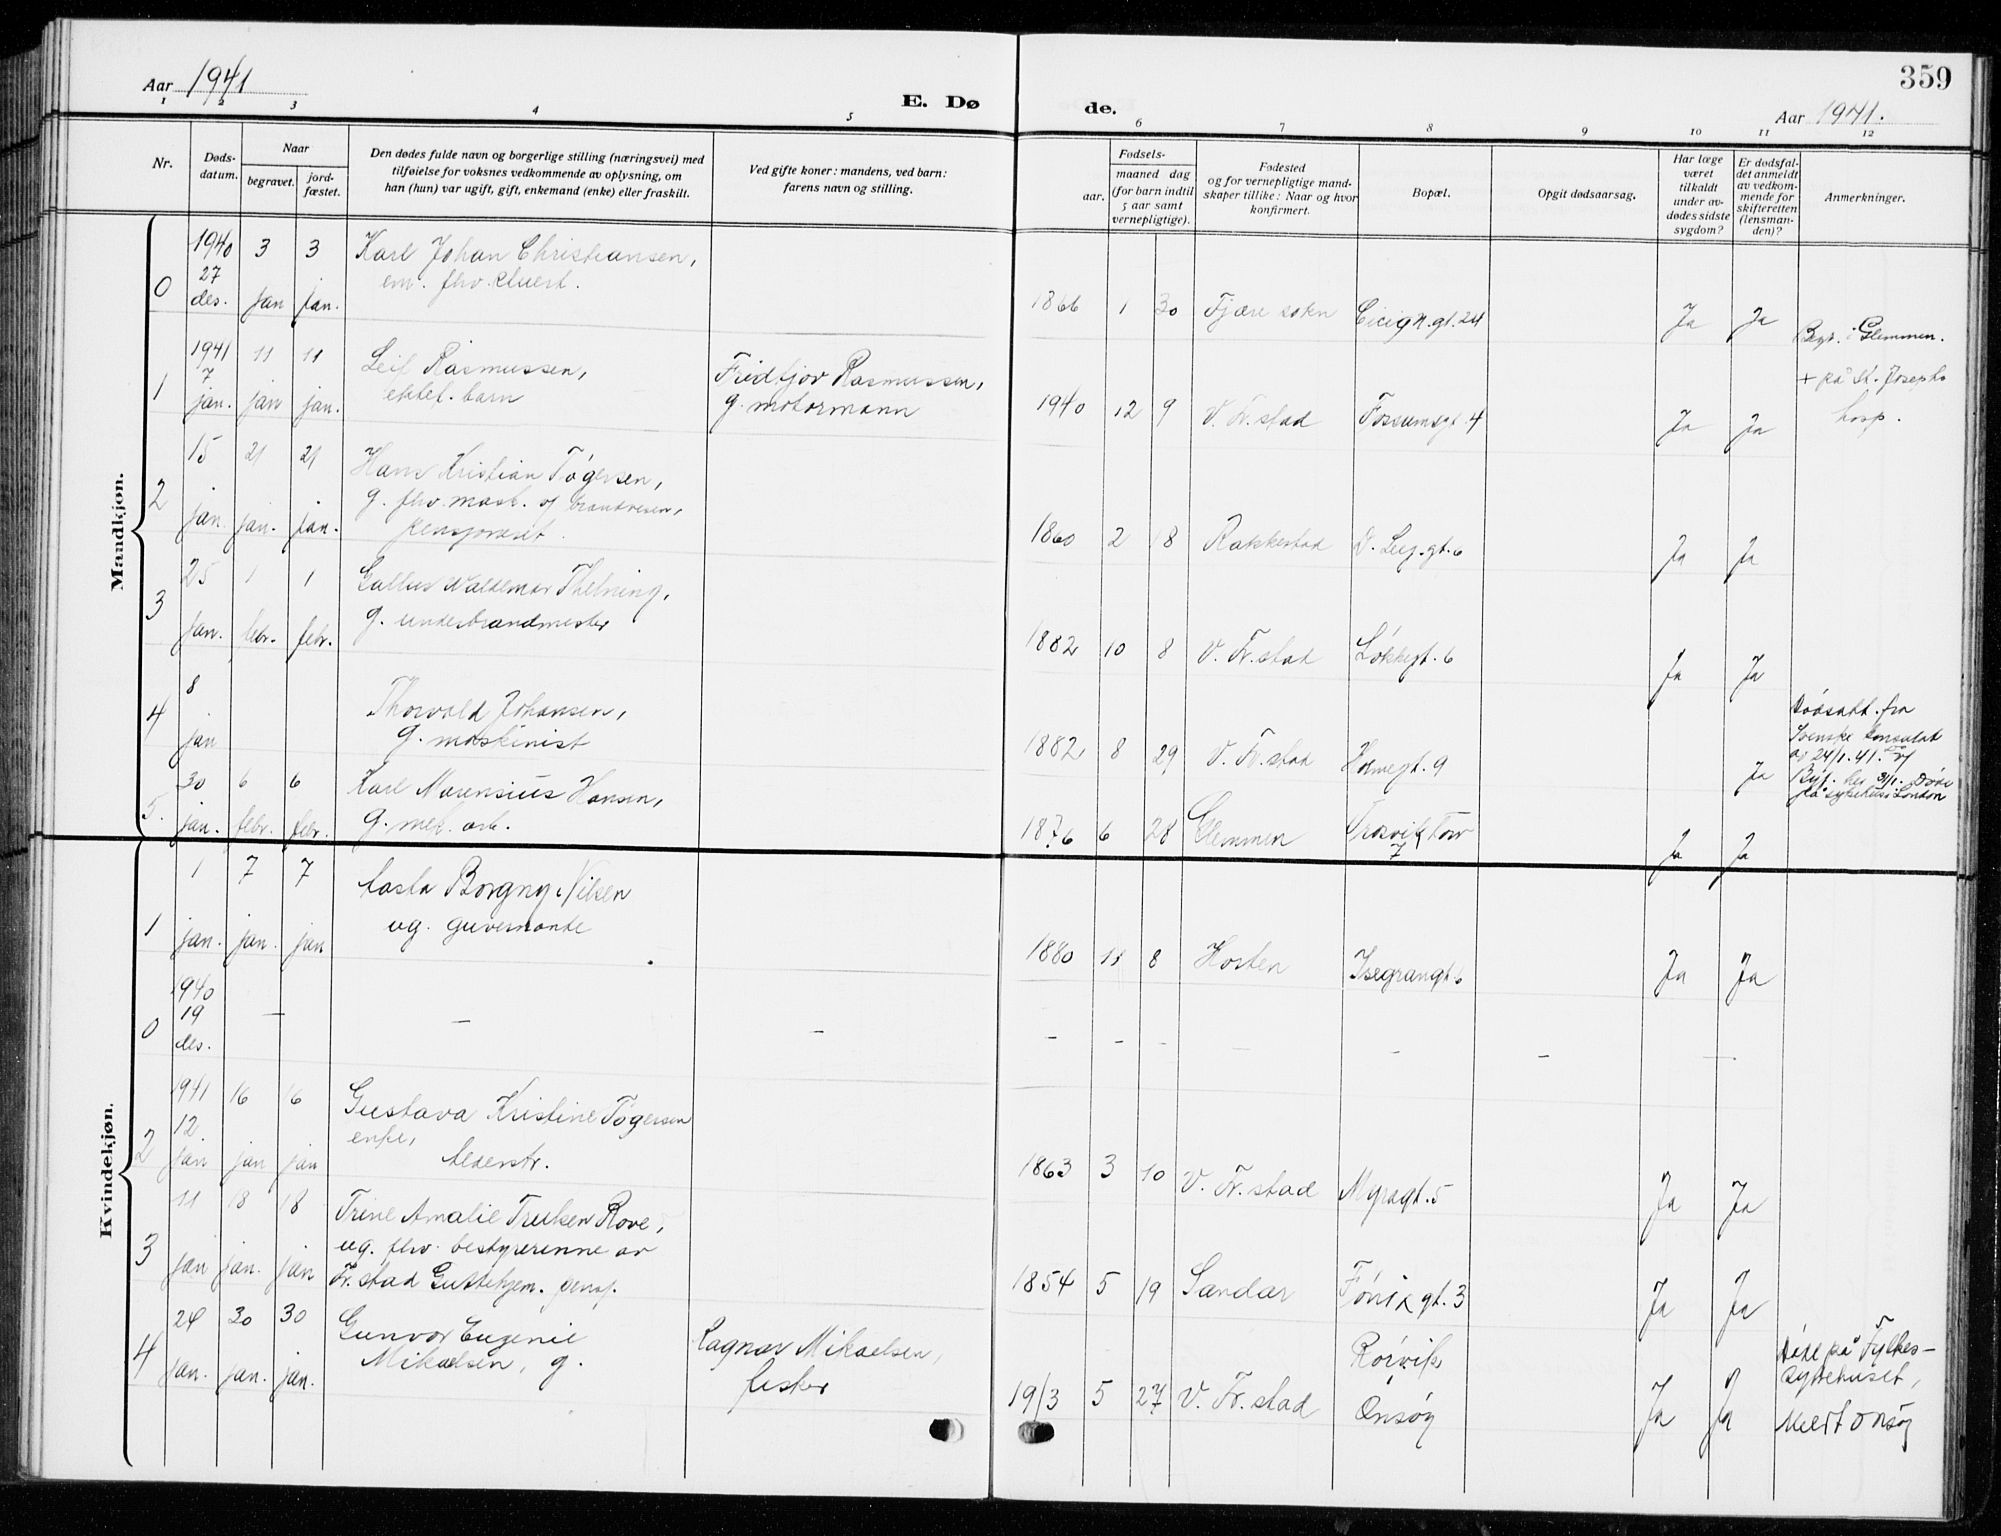 Aar 1941
E. Dø
de.
Aar 1941.
359
1 2 3 4 5 6 7 8 9 10 11 12
Nr.
Døds-
datum.
Naar
begravet.
jord-
fæstet.
Den dødes fulde navn og borgerlige stilling (næringsvei) med
tilføielse for voksnes vedkommende av oplysning, om
han (hun) var ugift, gift, enkemand (enke) eller fraskilt.
Ved gifte koner: mandens, ved barn:
farens navn og stilling.
Fødsels-
aar.
maaned dag
(for barn indtil
5 aar samt
vernepligtige).
Fødested
og for vernepligtige mand-
skaper tillike: Naar og hvor
konfirmert.
Bopæl.
Opgit dødsaarsag.
Har læge
været
tilkaldt
under av-
dødes sidste
sygdom?
Er dødsfal-
det anmeldt
av vedkom-
mende for
skifteretten
(lensman-
den)?
Anmerkninger.
Mandkjøn.
0 1940 27 des. 3 jan 3 jan.
Karl Johan Christiansen,
em. fhv.
1866 1 30 Fjære sokn Cicign.gt. 24 Ja Ja
Begr. i Glemmen.
1 1941 7 jan. 11 jan 11 jan.
Leif Rasmussen,
ektef. barn
Fridtjov Rasmussen,
g. motormann
1940 12 9 V. Fr.stad Fossumsgt 4 Ja Ja
+ på St. Josephs
hosp.
2 15 jan. 21 jan. 21 jan.
Hans Kristian Tøgersen,
g. fhv. mask. v/ brandvesen,
pensjonist.
1860 2 18 Rakkestad Ja Ja
3 25 jan. 1 febr. 1 febr.
Gallus Waldemar Thelning,
g. underbrandmester
1882 10 8 V. Fr.stad Løkkegt. 6 Ja Ja
4 8 jan
Thorvald Johansen,
g. maskinist
1882 8 29 V. Fr.stad Hornegt. 9 Ja
Dødsatt. fra
Svenske konsulat
av 24/1. 41.
5. 30 jan. 6 febr. 6 febr.
Karl Marensius Hansen,
g. mek. arb.
1876 6 28 Glemmen Trosvik Torv
7 Ja Ja
Kvindekjøn.
1 1 jan. 7 jan. 7 jan
Aasta Borgny Nilsen
ug. guvernante
1880 11 8 Horten Isegrangt. 6 Ja Ja
0 1940 19 des. — — — — — — — — — —
2 1941 12 jan 16 jan 16 jan
Gustava Kristine Tøgersen
enke,
Alderstr.
1863 3 10 V. Fr.stad Myragt. 5 Ja Ja
3 11 jan 18 jan. 18 jan
Trine Amalie Trulsen Rove,
ug. fhv. bestyrerinne av
Fr.stad Guttehjem. pensj.
1854 5 19 Sandar Fønix gt. 3 Ja Ja
4 24 jan. 30 jan. 30 jan.
Gunvor Eugenie
Mikaelsen, g.
Ragnar Mikaelsen,
fisker
1913 5 27 V. Fr.stad Rørvik,
Onsøy Ja Ja
Døde på Fylkes-
sykehuset,
Meldt Onsøy